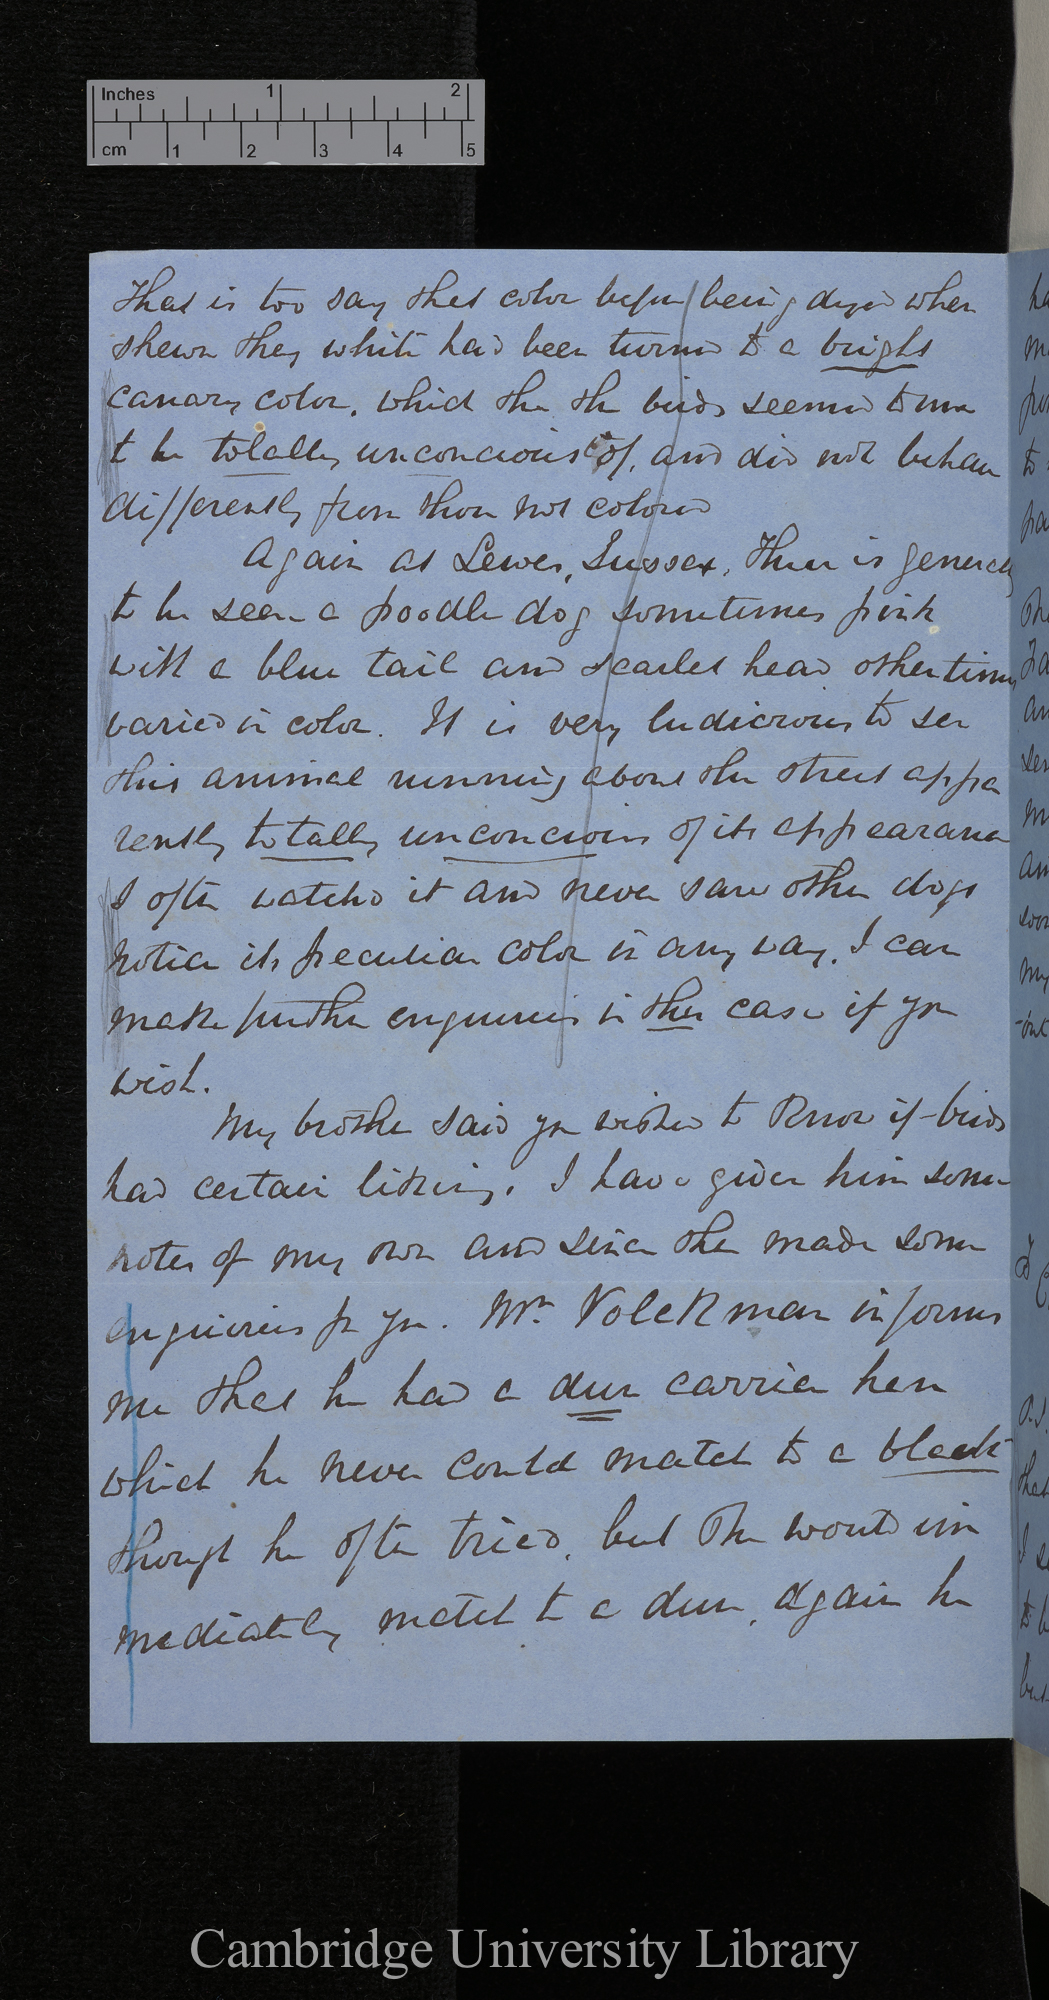 Inches 1 2
cm 1 2 3 4 5
That is too say that color before being dyed when
shewn they white had been turned to a bright
canary color, which the the birds seemed to me
to be totally unconcious of, and did not behave
differently from those not colored
Again at Lewes, Sussex, there is generally
to be seen a poodle dog sometimes pink
with a blue tail and scarlet head other times
varied in color. It is very ludicrous to see
this animal running about the street appa
rently totally unconcious of its appearance
I often watched it and never saw other dogs
notice its peculiar color in any way, I can
make further enquiries in this case if you
wish.
My brother said you wished to know if birds
had certain likings. I have given him some
notes of my own and since then made some
enquiries for you. Mr. Volckman informs
me that he had a dun carrier hen
which he never could match to a black
though he often tried, but she would im
mediately match to a dun, again he
Cambridge University Library